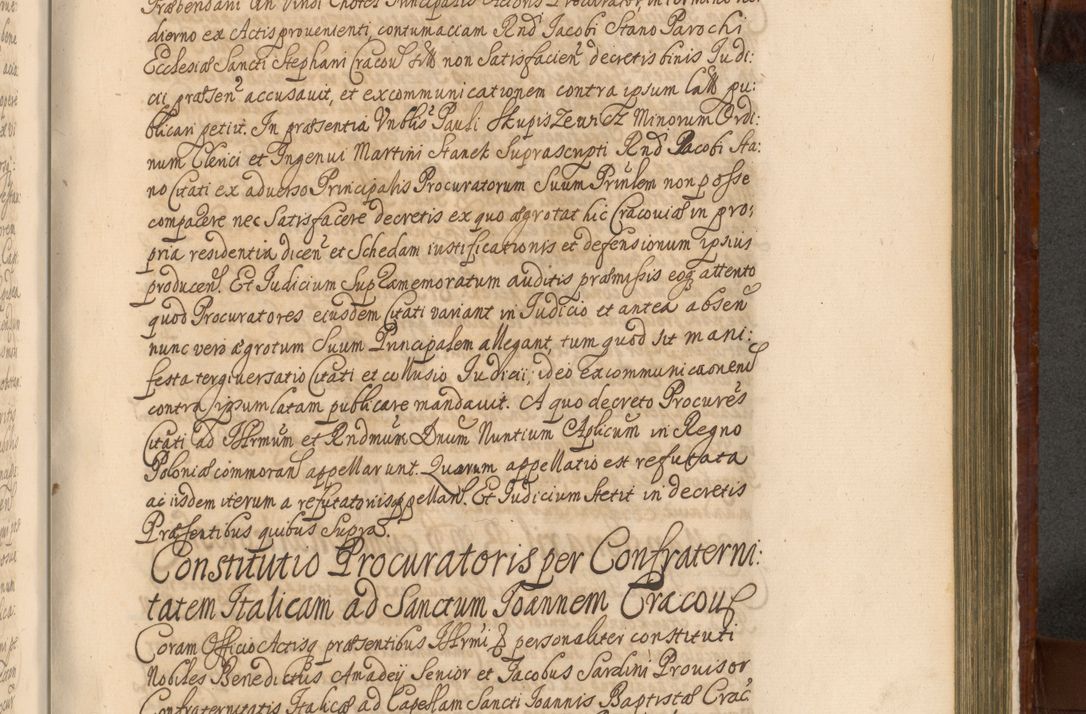 Præbendarii An Vindi Chotes Principalis Actoris Procurator in termino ho:
dierno ex Actis provenienti, contumaciam Rndi Jacobi Stano Parochi
Ecclesiæ Sancti Stephani Cracoui non Satisfacien decretis binis Iudi:
cii præsen accusauit, et excommunicationem contra ipsum latt pu:
blicari petiit. In præsentia Vnblis Pauli Skupiszewicz Minorum Ordi:
num Clerici et Ingenui Martini Stanek Suprascripti Rndi Iacobi Sta:
no Citati ex aduerso Principalis Procuratorum Suum Prinlem non posse
comparere nec Satisfacere decretis ex quo ægrotat hic Cracoviæ in pro:
pria residentia dicen et Schedam iustificationis et defensionum ipsius
producen. Et Iudicium Supramemoratum auditis præmissis eoq attento
quod Procuratores eiusdem Citati variant in Iudicio et antea absen
nunc vero ægrotum Suum Principalem allegant, tum quod sit mani:
festa tergiuersatio Citati et collusio Iudicii, ideo excommunicaonem
contra ipsum latam publicare mandauit. A quo decreto Procures
Citati ad Illrmum et Rndmum Dnum Nuntium Aplicum in Regno
Poloniæ commoran appellarunt. Quarum appellatio est refutata
ac iisdem iterum a refutatoriis appellant. Et Iudicium stetit in decretis
Præsentibus quibus supra.
Constitutio Procuratoris per Confraterni:
tatem Italicam ad Sanctum Joannem Cracou
Coram Officio Actisq præsentibus Illrmi D personaliter constituti
Nobiles Benedictus Amadej Senior et Jacobus Sardini Provisor
Confraternitatis Italicæ ad Capellam Sancti Joannis Baptistæ Crac